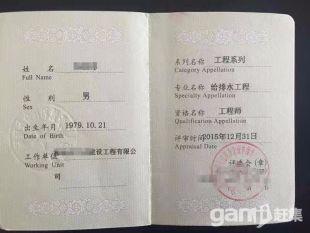 姓 名
Full Name
性 别 男
Sex
出生年月 1979.10.21
Date of Birth
工作单位 建设工程有限公
Working Unit 司
系列名称 工程系列
Category Appellation
专业名称 给排水工程
Specialty Appellation
资格名称 工程师
Qualification Appellation
评审时间 2015年12月31日
Appraisal Date
评委会(章)
ganji 赶集